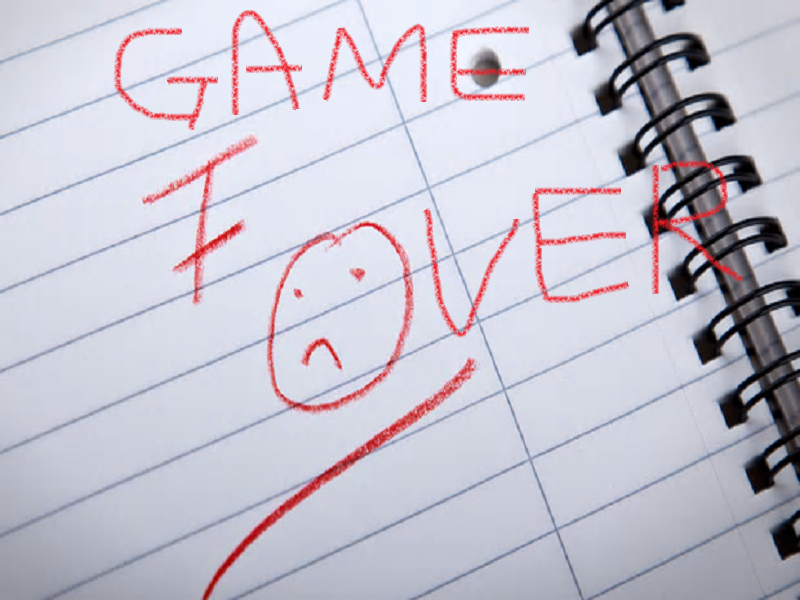 GAME
F
OVER